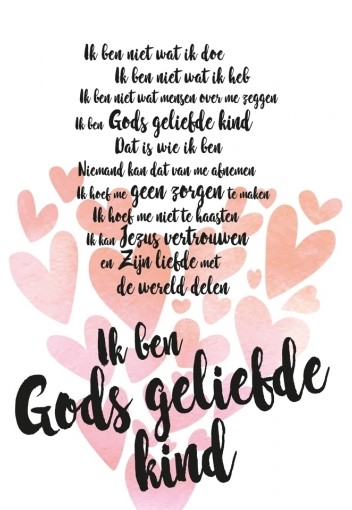 Ik ben niet wat ik doe
Ik ben niet wat ik heb
Ik ben niet wat mensen over me zeggen
Ik ben Gods geliefde kind
Dat is wie ik ben
Niemand kan dat van me afnemen
Ik hoef me geen zorgen te maken
Ik hoef me niet te haasten
Ik kan Jezus vertrouwen
en Zijn liefde met
de wereld delen
Ik ben
Gods geliefde
kind